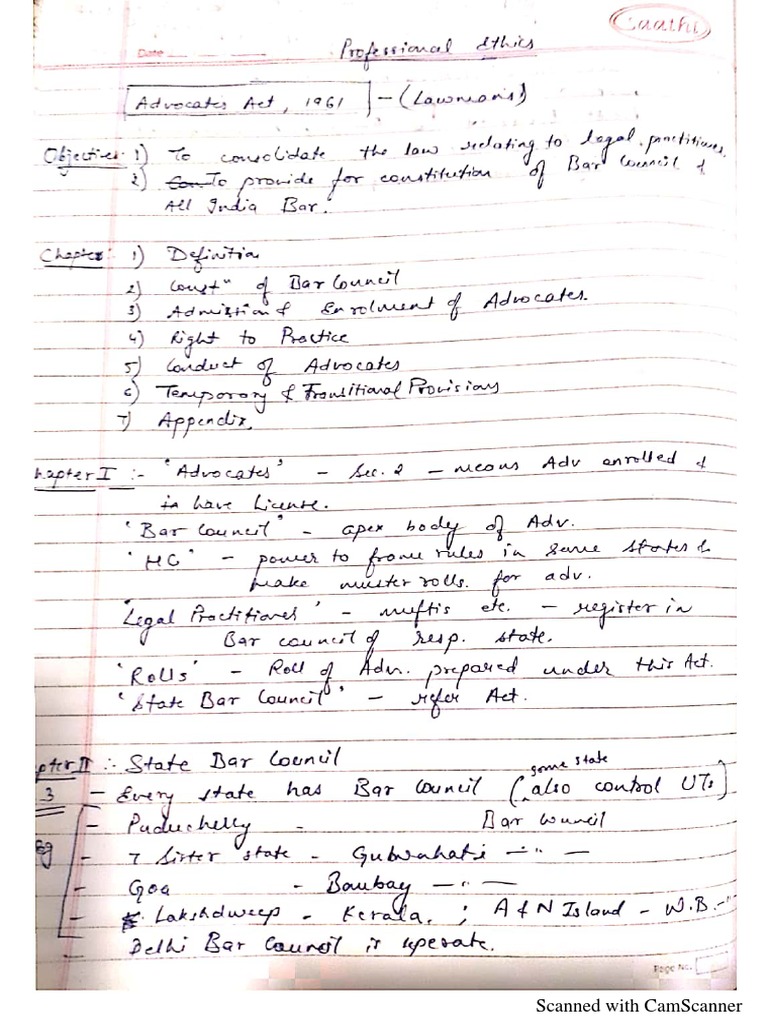 Saathi
Date
Professional Ethics
Advocates Act, 1961 - (Lawman's)
Objectives 1) To consolidate the law relating to legal practitioners.
2) To provide for constitution of Bar Council &
All India Bar.
Chapter: 1) Definition
2) Constn of Bar Council
3) Admission & Enrolment of Advocates.
4) Right to Practice
5) Conduct of Advocates
6) Temporary & Transitional Provisions
7) Appendix.
hapter I :- 'Advocates' - Sec. 2 - means Adv enrolled &
in have License.
'Bar Council' - apex body of Adv.
'HC' - power to frame rules in same states &
make muster rolls. for adv.
'Legal Practitioner' - muftis etc. - register in
Bar council of resp. state.
'Rolls' - Roll of Adv. prepared under this Act.
'State Bar Council' - refer Act.
pter II :- State Bar Council
some state
3 - Every state has Bar Council (also control UTs)
Eg - Puducherry - Bar Council
- 7 Sister state - Guwahati - " -
- Goa - Bombay - " -
- Lakshdweep - Kerala. ; A & N Island - W.B. - "
Delhi Bar Council is seperate.
Page No.
Scanned with CamScanner